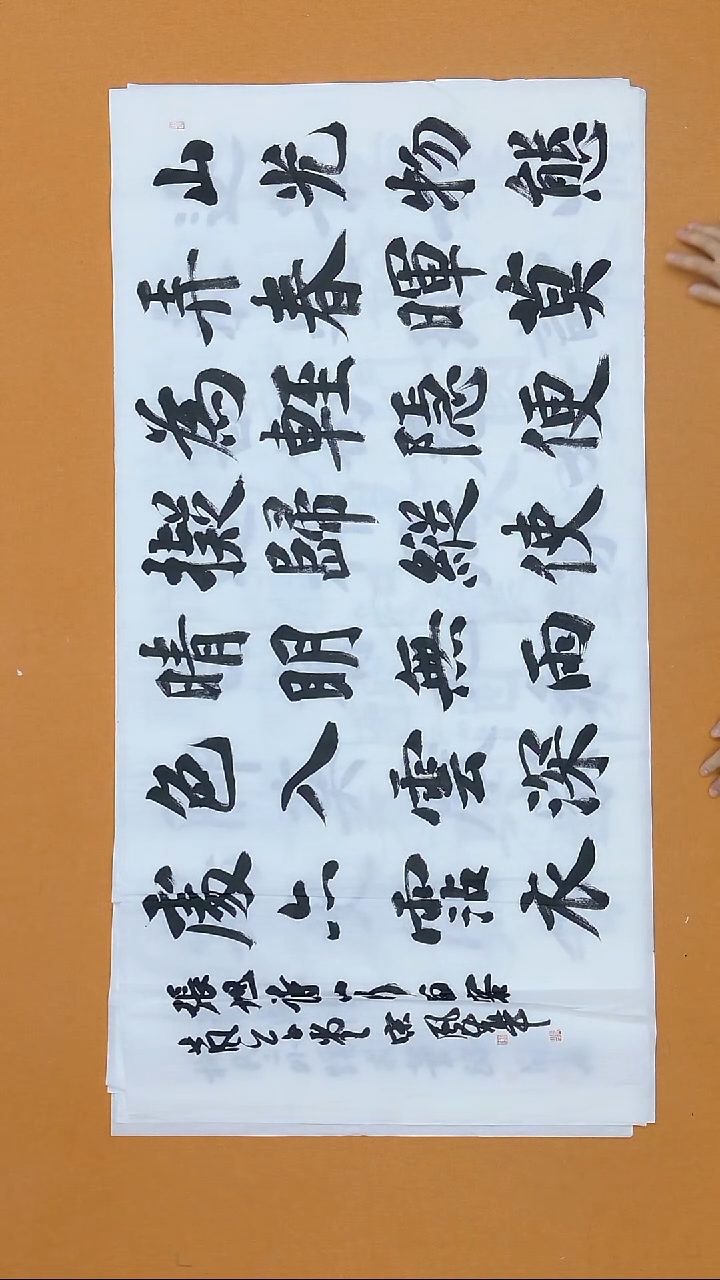 山光物態
弄春暉莫
為輕陰便
擬歸縱使
晴明無雨
色入雲深
處亦霑衣
張旭詩山行留客
歲乙巳